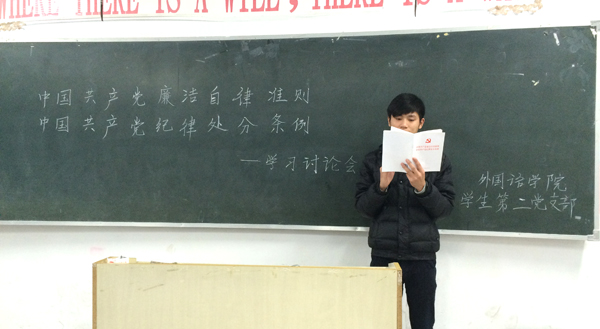 WHERE THERE IS A WILL, THERE IS A
中国共产党廉洁自律准则
中国共产党纪律处分条例
—学习讨论会
外国语学院
学生第二党支部